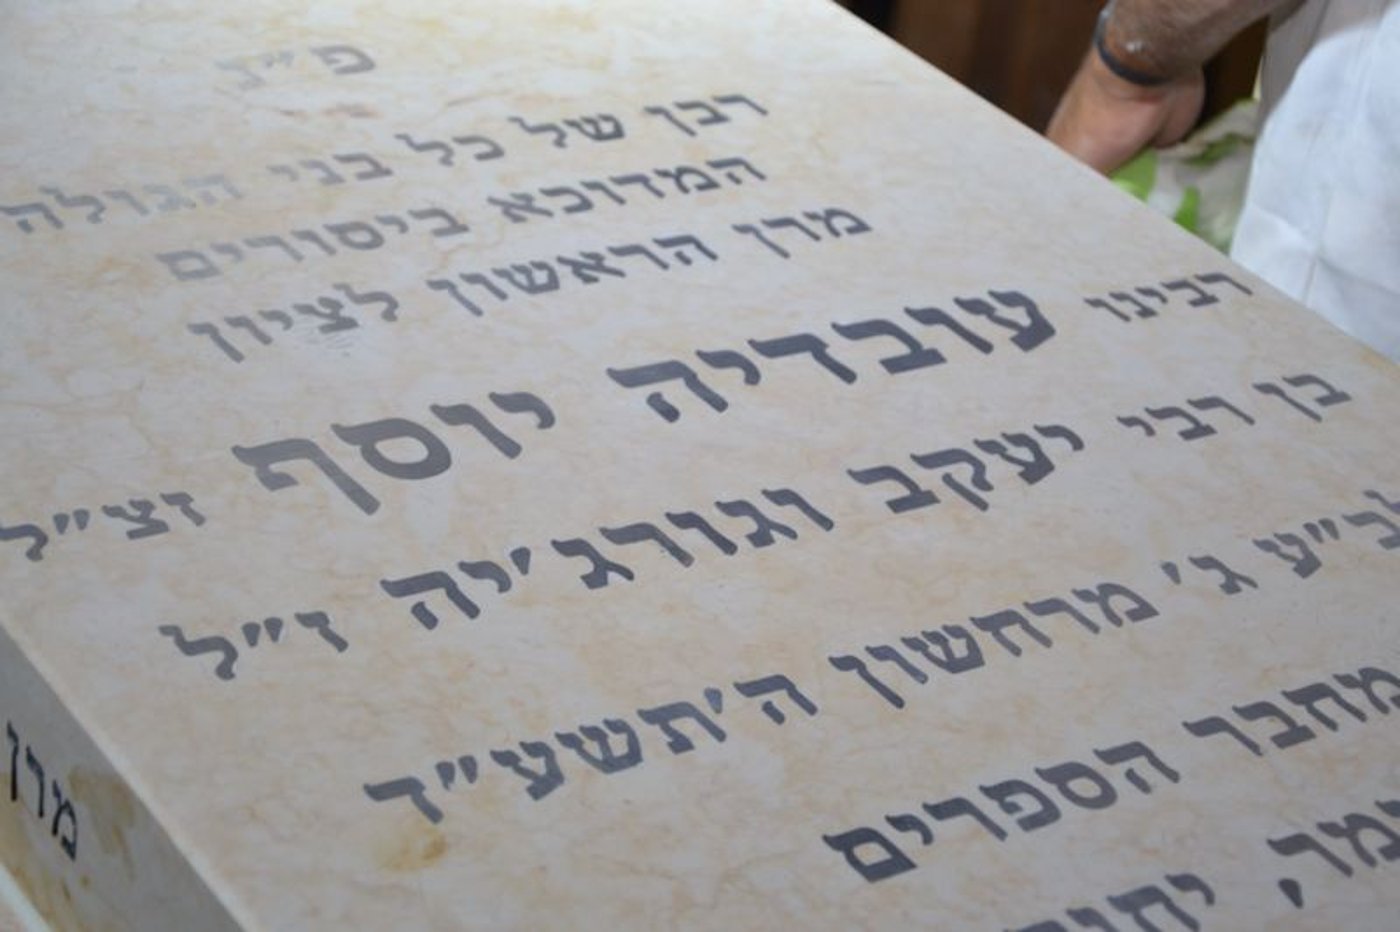 פ״נ
רבן של כל בני הגולה
המדוכא ביסורים
מרן הראשון לציון
רבינו עובדיה יוסף זצ״ל
בן רבי יעקב וגורג׳יה ז״ל
ג׳ מרחשון ה׳תשע״ד
מחבר הספרים
מרן